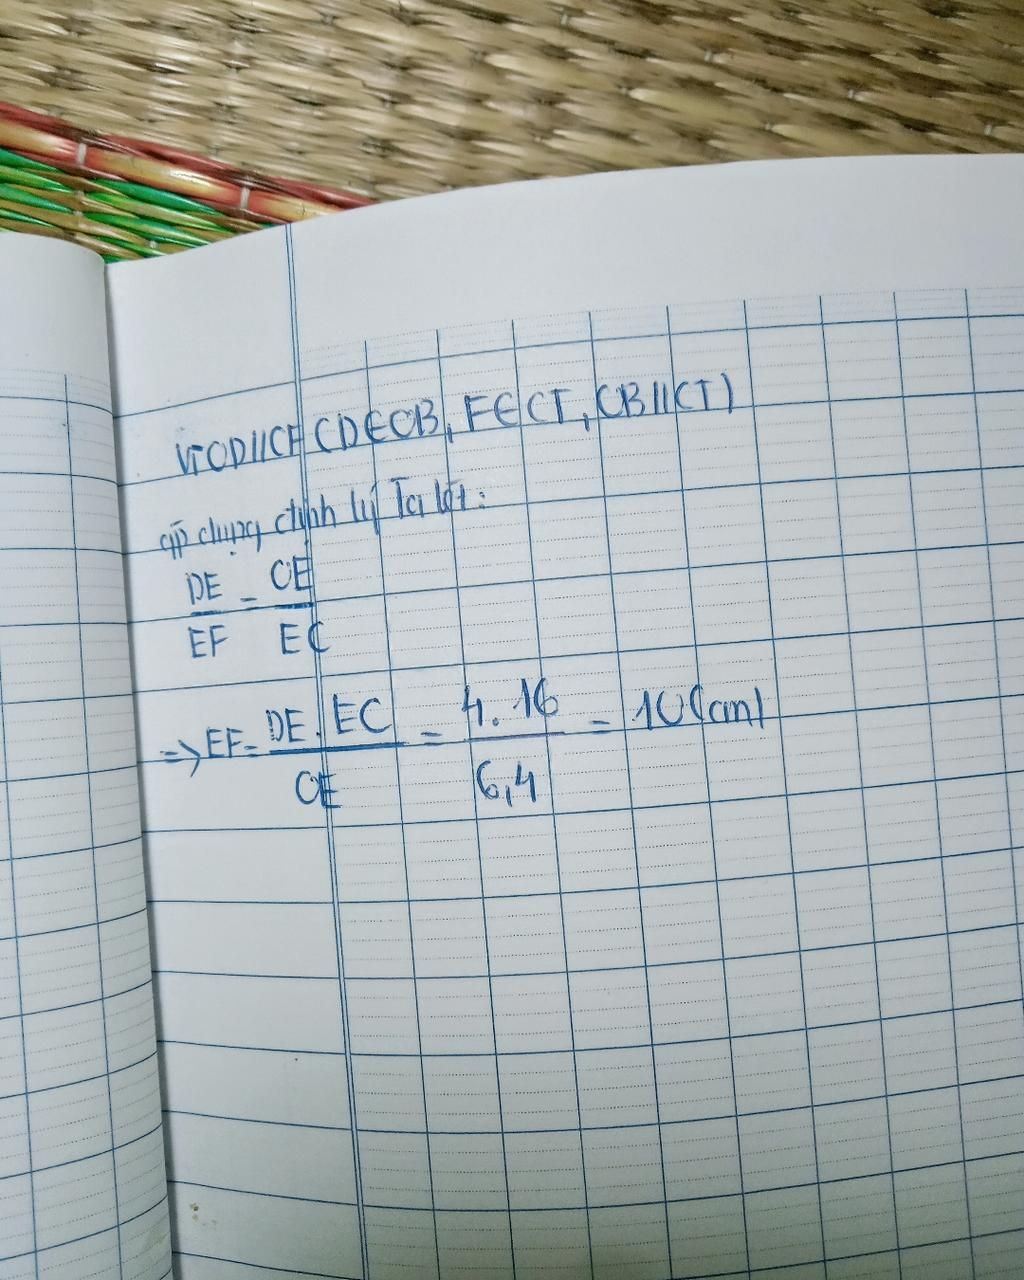 Vì OD//CF (D∈OB, F∈CT, OB//CT)
áp dụng định lý Ta lét:
DE/EF = OE/EC
=> EF = DE.EC/OE = 4.16/6,4 = 10 (cm)